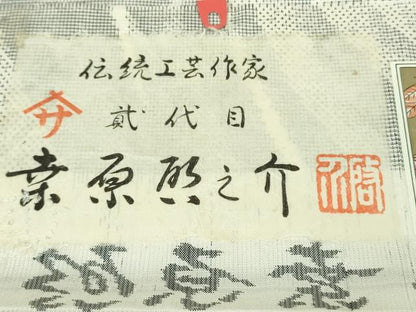 伝統工芸作家
貳代目
桒原啓之介